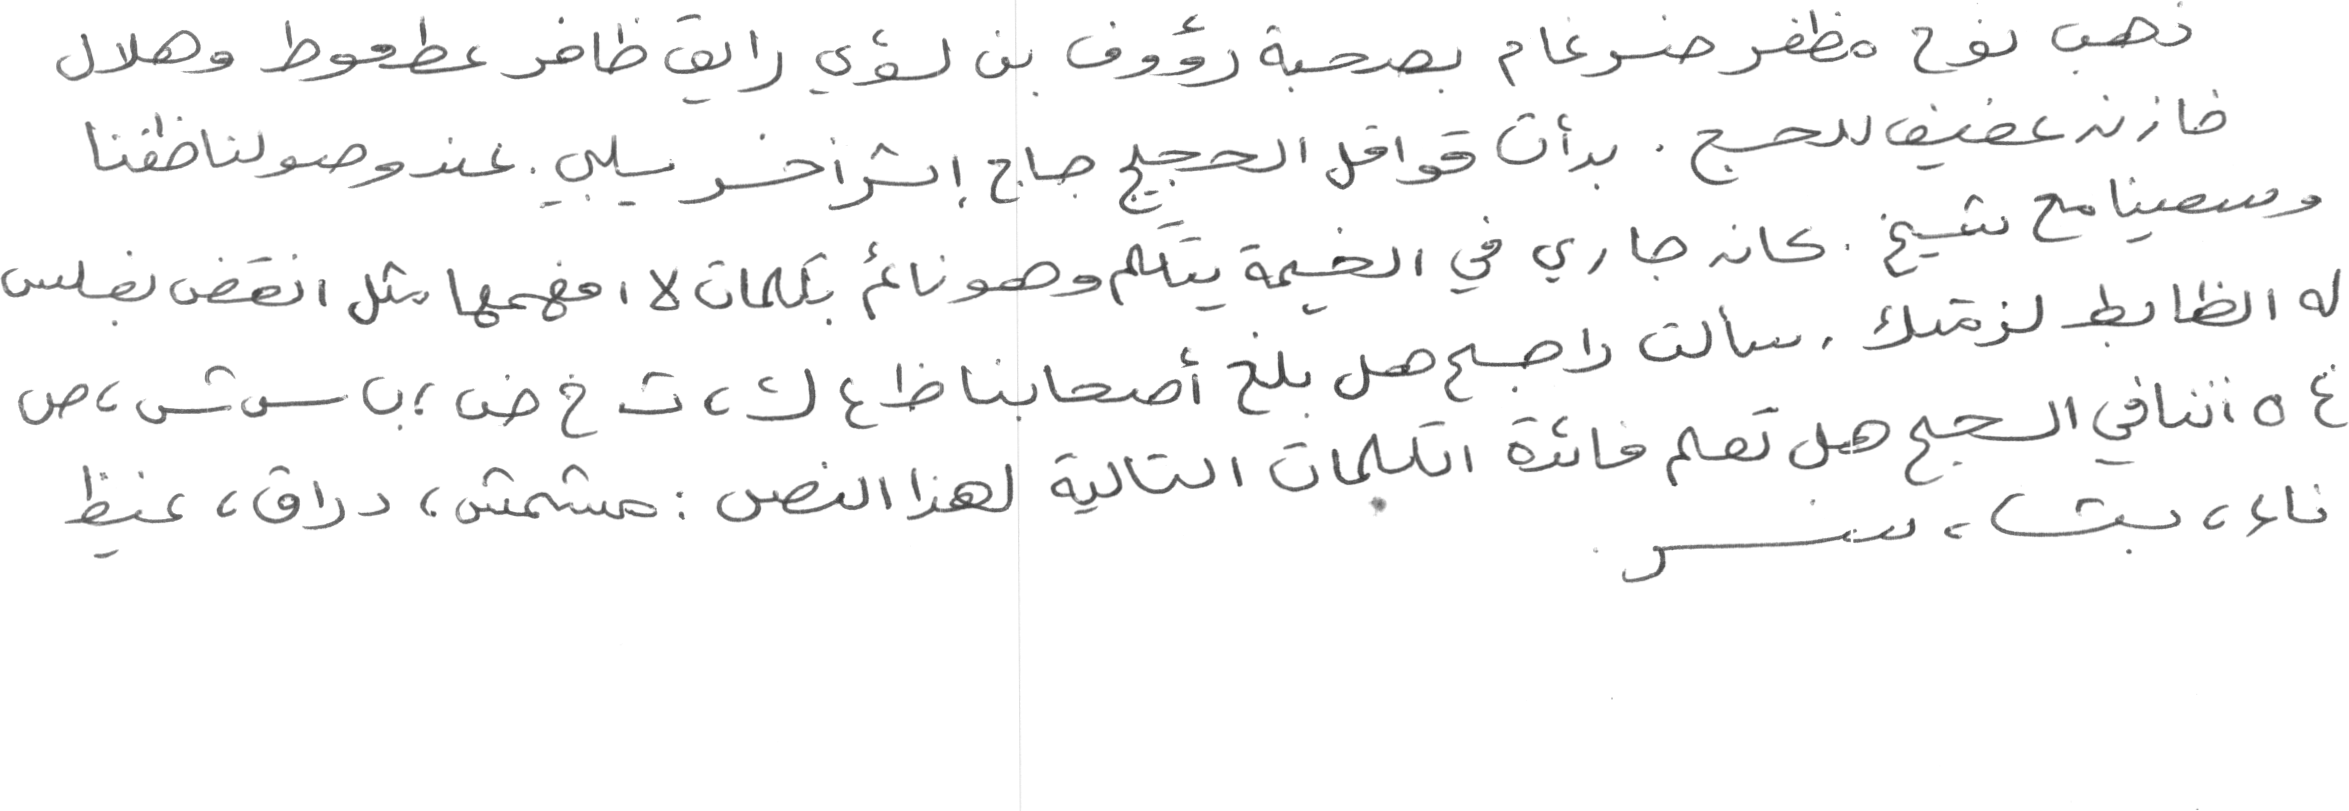 ذهب نوح مظفر ضرغام بصحبة رؤوف بن لؤي رايق ظافر عطعوط وهلال
خازن عفيف للحج . بدأت قوافل الحجيج جاج إثر أخر سيلبي . عند وصولنا طفنا
وسعينا مع شيخ . كان جاري في الخيمة يتكلم وهو نائم بكلمات لا افهمها مثل انقض نغلس
له الظابط لزمتك . سألت راجح هل بلغ أصحابنا ظ ع ك ، ث خ ض ، ب س ش ، ص
غ ه اننا في الحج هل تعلم فائدة الكلمات التالية لهذا النص : مشمش ، دراق ، غيظ
ناء ، بث ، سر